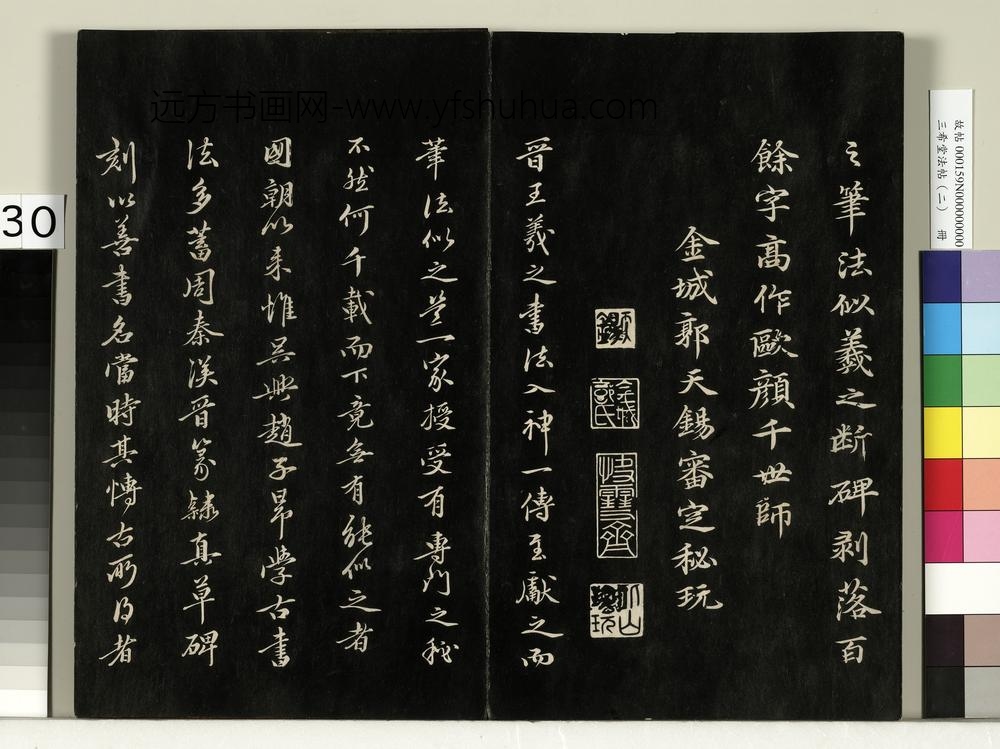 之筆法似羲之断碑剥落百
餘字高作歐顏千世師
金城郭天錫審定秘玩
金城郭氏
快雪齋
晉王羲之書法入神一傳至獻之而
筆法似之豈一家授受有專門之秘
不然何千載而下竟無有能似之者
國朝以来惟吴興趙子昂學古書
法多蓄周秦漢晉篆隸真草碑
刻以善書名當時其慱古所得者
远方书画网-www.yfshuhua.com
故帖 000159N000000000
三希堂法帖（二） 冊
30